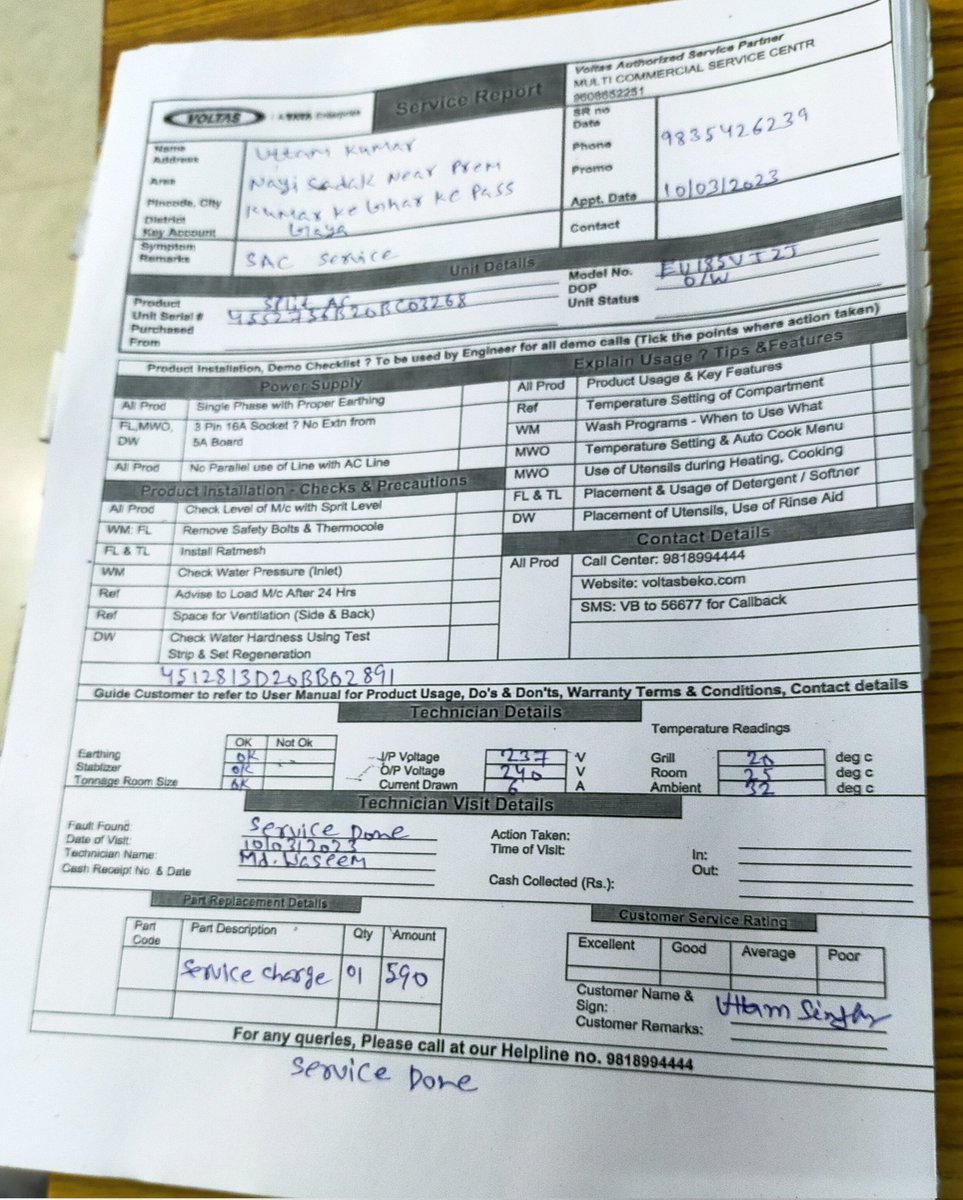 VOLTAS
Service Report
Voltas Authorized Service Partner
MULTI COMMERCIAL SERVICE CENTR
9608652251
Name Uttam Kumar
Address Nayi Sadak Near Prem
Area Kumar ke Ghar ke Pass
Pincode, City Gaya
District
Key Account
Symptom SAC Service
Remarks
SR no
Date
Phone 9835426239
Promo
Appt. Date 10/03/2023
Contact
Unit Details
Product Split AC
Unit Serial # 4552756B20BC03268
Purchased
From
Model No. EU185VTZJ
DOP O/W
Unit Status
Product Installation, Demo Checklist ? To be used by Engineer for all demo calls (Tick the points where action taken)
Power Supply
All Prod Single Phase with Proper Earthing
FL,MWO, 3 Pin 16A Socket ? No Extn from
DW 5A Board
All Prod No Parallel use of Line with AC Line
Product Installation - Checks & Precautions
All Prod Check Level of M/c with Sprit Level
WM: FL Remove Safety Bolts & Thermocole
FL & TL Install Ratmesh
WM Check Water Pressure (Inlet)
Ref Advise to Load M/c After 24 Hrs
Ref Space for Ventilation (Side & Back)
DW Check Water Hardness Using Test
Strip & Set Regeneration
Explain Usage ? Tips &Features
All Prod Product Usage & Key Features
Ref Temperature Setting of Compartment
WM Wash Programs - When to Use What
MWO Temperature Setting & Auto Cook Menu
MWO Use of Utensils during Heating, Cooking
FL & TL Placement & Usage of Detergent / Softner
DW Placement of Utensils, Use of Rinse Aid
Contact Details
All Prod Call Center: 9818994444
Website: voltasbeko.com
SMS: VB to 56677 for Callback
4512813D20BB02891
Guide Customer to refer to User Manual for Product Usage, Do's & Don'ts, Warranty Terms & Conditions, Contact details
Technician Details
OK Not Ok
Earthing OK
Stablizer OK
Tonnage Room Size OK
I/P Voltage 237 V
O/P Voltage 240 V
Current Drawn 6 A
Temperature Readings
Grill 20 deg c
Room 25 deg c
Ambient 32 deg c
Technician Visit Details
Fault Found: Service Done
Date of Visit: 10/03/2023
Technician Name: Md. Waseem
Cash Receipt No. & Date
Action Taken:
Time of Visit: In:
Out:
Cash Collected (Rs.):
Part Replacement Details
Part Code Part Description Qty Amount
Service charge 01 590
Customer Service Rating
Excellent Good Average Poor
Customer Name &
Sign: Uttam Singh
Customer Remarks:
For any queries, Please call at our Helpline no. 9818994444
Service Done